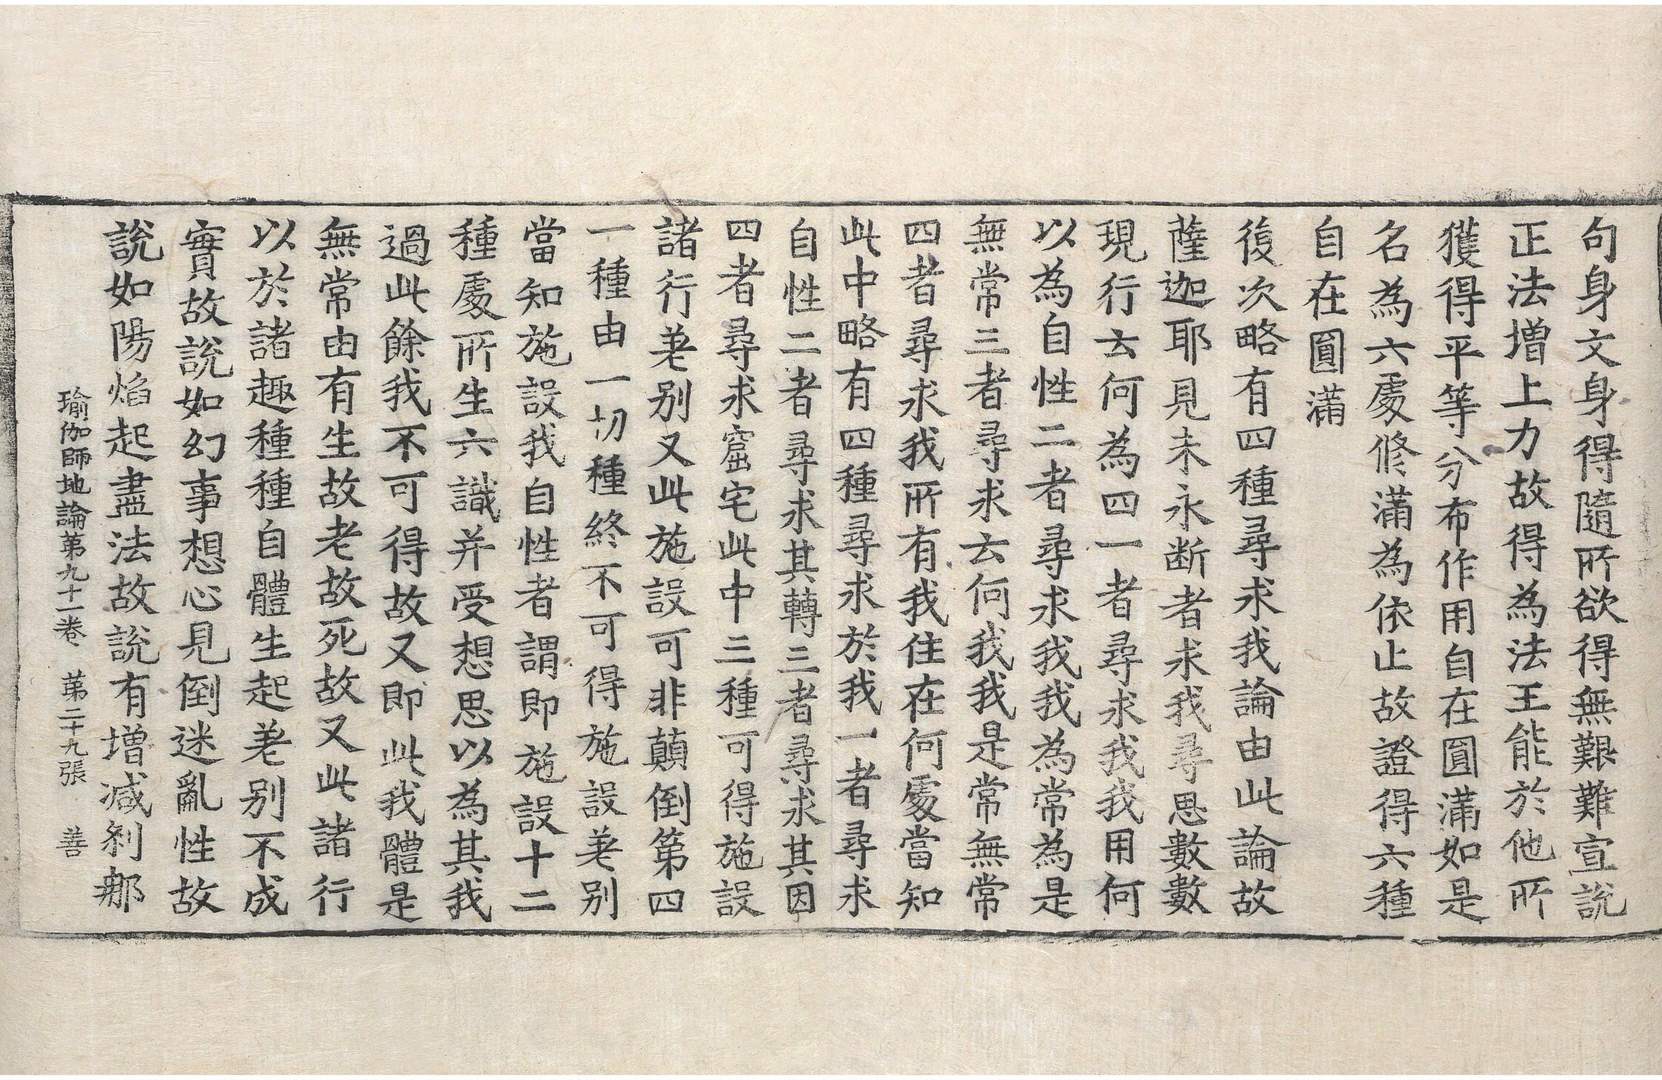 句身文身得隨所欲得無艱難宣說
正法增上力故得為法王能於他所
獲得平等分布作用自在圓滿如是
名為六處修滿為依止故證得六種
自在圓滿
後次略有四種尋求我論由此論故
薩迦耶見未永断者求我尋思數數
現行云何為四一者尋求我我用何
以為自性二者尋求我我為常為是
無常三者尋求云何我我是常無常
四者尋求我所有我住在何處當知
此中略有四種尋求於我一者尋求
自性二者尋求其轉三者尋求其因
四者尋求窟宅此中三種可得施設
諸行差别又此施設可非顛倒第四
一種由一切種終不可得施設差别
當知施設我自性者謂即施設十二
種處所生六識并受想思以為其我
過此餘我不可得故又即此我體是
無常由有生故老故死故又此諸行
以於諸趣種種自體生起差别不成
實故說如幻事想心見倒迷亂性故
說如陽焰起盡法故說有增減刹那
瑜伽師地論第九十一卷　第二十九張　善